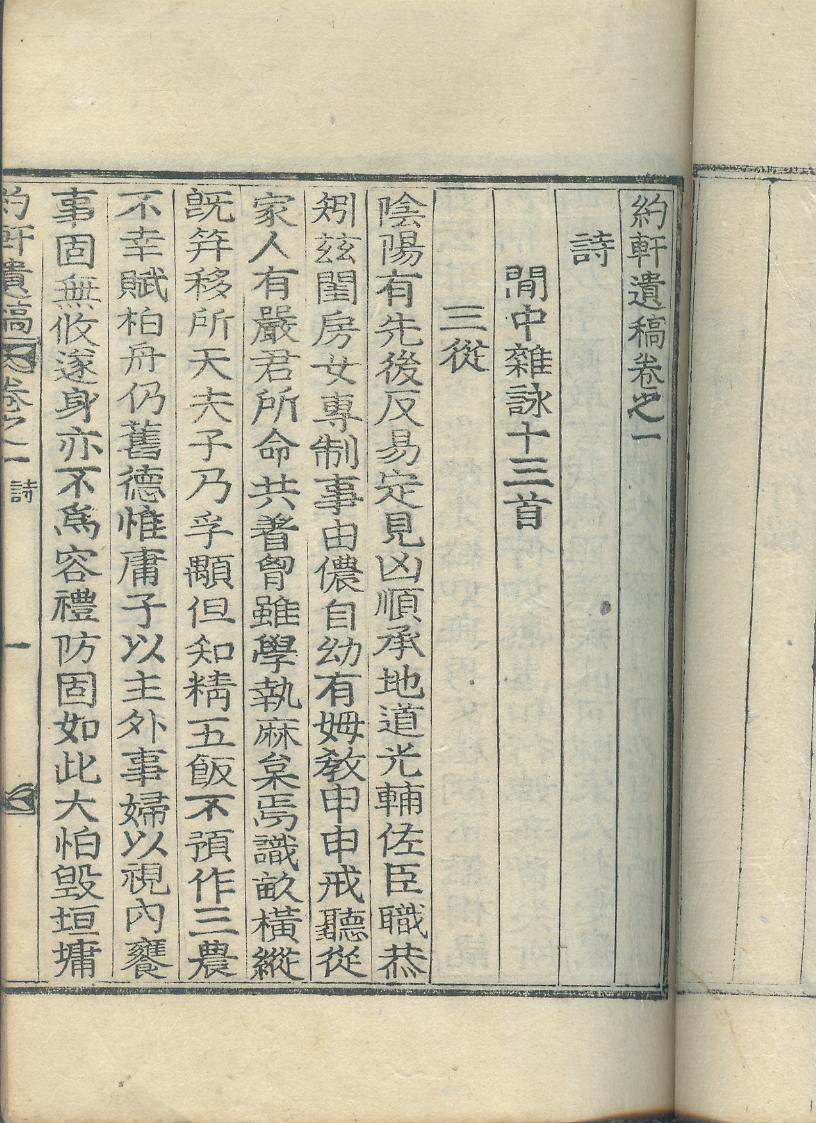 約軒遺稿卷之一
詩
閒中雜詠十三首
三從
陰陽有先後反易定見凶順承地道光輔佐臣職恭
矧玆閨房女專制事由儂自幼有姆敎申申戒聽從
家人有嚴君所命共著曾雖學執麻枲焉識畝橫縱
旣笄移所天夫子乃孚顒但知精五飯不預作三農
不幸賦柏舟仍舊德惟庸子以主外事婦以視內饔
事固無攸遂身亦不爲容禮防固如此大怕毁垣墉
約軒遺稿 卷之一 詩 一